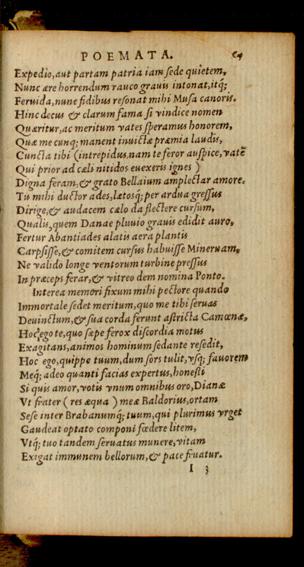 POEMATA.
Expedio, aut partam patria iam sede quietem,
Nunc ære horrendum rauco grauis intonat, itq;
Feruida, nunc fidibus resonat mihi Musa canoris.
Hinc decus & clarum fama si vindice nomen
Quæritur, ac meritum vates speramus honorem,
Quæ me cunq; manent inuictæ præmia laudis,
Cuncta tibi (intrepidus, nam te feror auspice, vatē
Qui prior ad cæli nitidos euexeris ignes)
Digna feram, & grato Bellaium amplectar amore.
Tu mihi ductor ades, lætosq; per ardua gressus
Dirige, & audacem cælo da flectere cursum,
Qualis, quem Danae pluuio grauis edidit auro,
Fertur Abantiades alatis aera plantis
Carpsisse, & comitem cursus habuisse Mineruam,
Ne valido longe ventorum turbine pressus
In præceps ferar, & vitreo dem nomina Ponto.
Interea memori fixum mihi pectore quando
Immortale sedet meritum, quo me tibi seruas
Deuinctum, & sua corda ferunt astricta Camœnæ,
Hoc ego te, quo sæpe ferox discordia motus
Exagitans, animos hominum sedante resedit,
Hoc ego, quippe tuum, dum sors tulit, vsq; fauorem
Meq; adeo quanti facias expertus, honesti
Si quis amor, votis vnum omnibus oro, Dianæ
Vt frater (res æqua) meæ Baldorius, ortam
Sese inter Brabanumq; tuum, qui plurimus vrget
Gaudeat optato componi fœdere litem,
Vtq; tuo tandem seruatus munere, vitam
Exigat immunem bellorum, & pace fruatur.
I 3